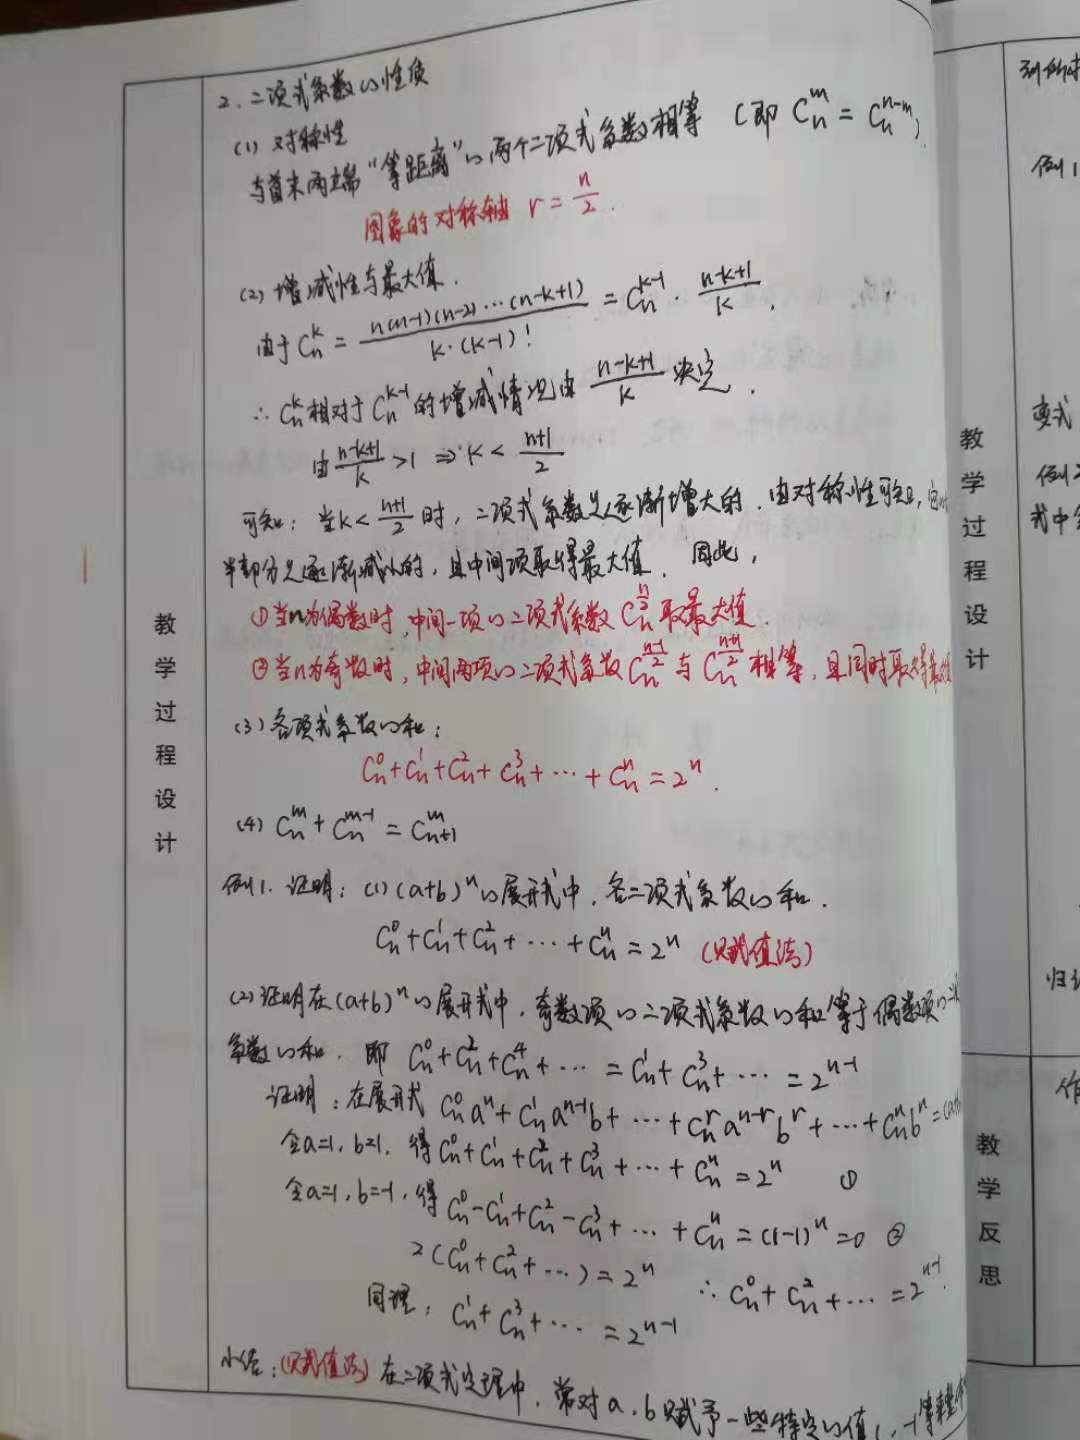 2. 二项式系数的性质
(1) 对称性
与首末两端“等距离”的两个二项式系数相等 (即 C_n^m = C_n^{n-m}).
图象的对称轴 r = n/2.
(2) 增减性与最大值.
由于 C_n^k = n(n-1)(n-2)…(n-k+1) / k·(k-1)! = C_n^{k-1} · (n-k+1)/k.
∴ C_n^k 相对于 C_n^{k-1} 的增减情况由 (n-k+1)/k 决定.
由 (n-k+1)/k > 1 ⇒ k < (n+1)/2
可知: 当 k < (n+1)/2 时, 二项式系数是逐渐增大的. 由对称性可知, 它
半部分是逐渐减小的, 且中间项取得最大值. 因此,
①当n为偶数时, 中间一项的二项式系数 C_n^{n/2} 取最大值.
②当n为奇数时, 中间两项的二项式系数 C_n^{(n-1)/2} 与 C_n^{(n+1)/2} 相等, 且同时取得最
(3) 各项式系数的和:
C_n^0 + C_n^1 + C_n^2 + C_n^3 + … + C_n^n = 2^n.
(4) C_n^m + C_n^{m-1} = C_{n+1}^m
例1. 证明: (1) (a+b)^n 的展开式中, 各二项式系数的和.
C_n^0 + C_n^1 + C_n^2 + … + C_n^n = 2^n (赋值法)
(2) 证明在 (a+b)^n 的展开式中, 奇数项的二项式系数的和等于偶数项的二
系数的和. 即 C_n^0 + C_n^2 + C_n^4 + … = C_n^1 + C_n^3 + … = 2^{n-1}
证明: 在展开式 C_n^0 a^n + C_n^1 a^{n-1}b + … + C_n^r a^{n-r} b^r + … + C_n^n b^n = (a+
令a=1, b=1, 得 C_n^0 + C_n^1 + C_n^2 + C_n^3 + … + C_n^n = 2^n ①
令a=1, b=-1, 得 C_n^0 - C_n^1 + C_n^2 - C_n^3 + … + C_n^n = (1-1)^n = 0 ②
2(C_n^0 + C_n^2 + …) = 2^n ∴ C_n^0 + C_n^2 + … = 2^{n-1}.
同理: C_n^1 + C_n^3 + … = 2^{n-1}
小结: (赋值法) 在二项式定理中, 常对a, b赋予一些特定的值1, -1等来整
教学过程设计
教学过程设计
教学反思
例1
变式
例2
式中
归
作